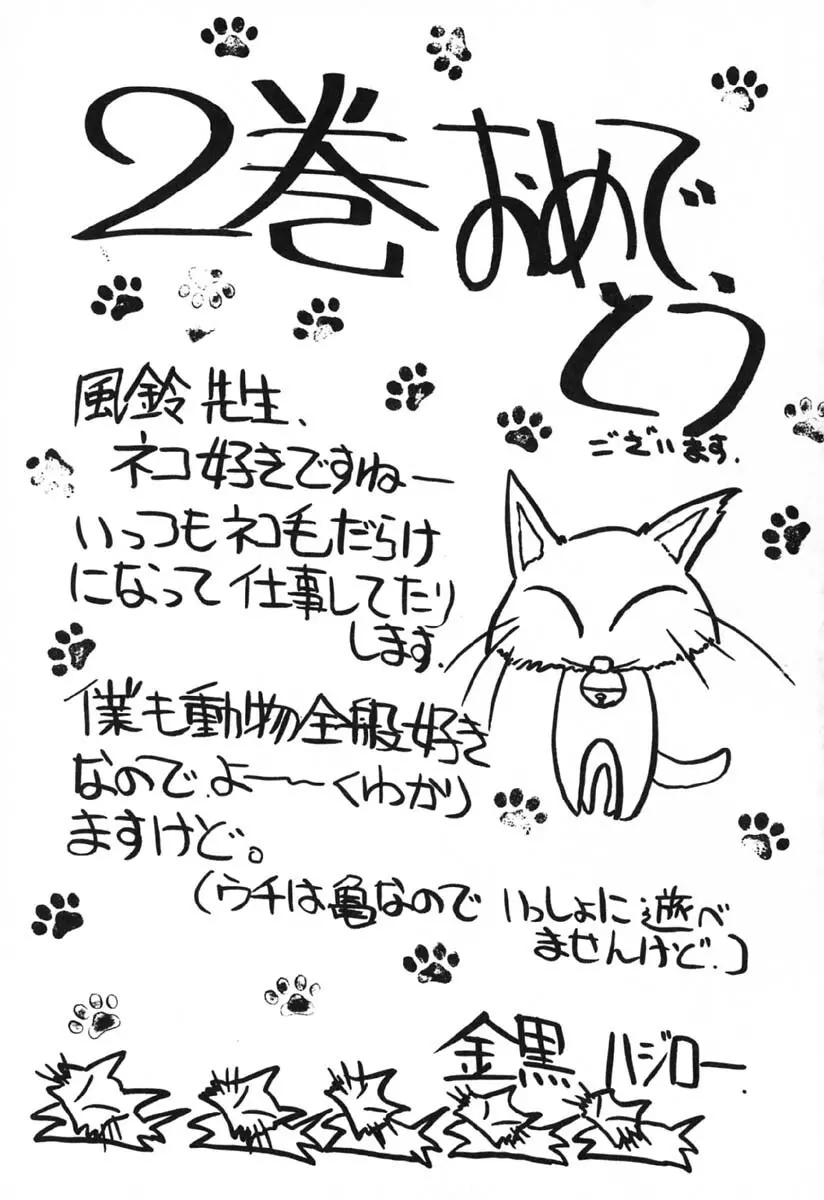 2巻おめで、
とう
ございます.
風鈴先生、
ネコ好きですねー
いっつもネコ毛だらけ
になって仕事してたり
します.
僕も動物全般好き
なので.よー〜くわかり
ますけど。
(ウチは亀なので いっしょに遊べ
ませんけど.)
金黒 ハジロー.